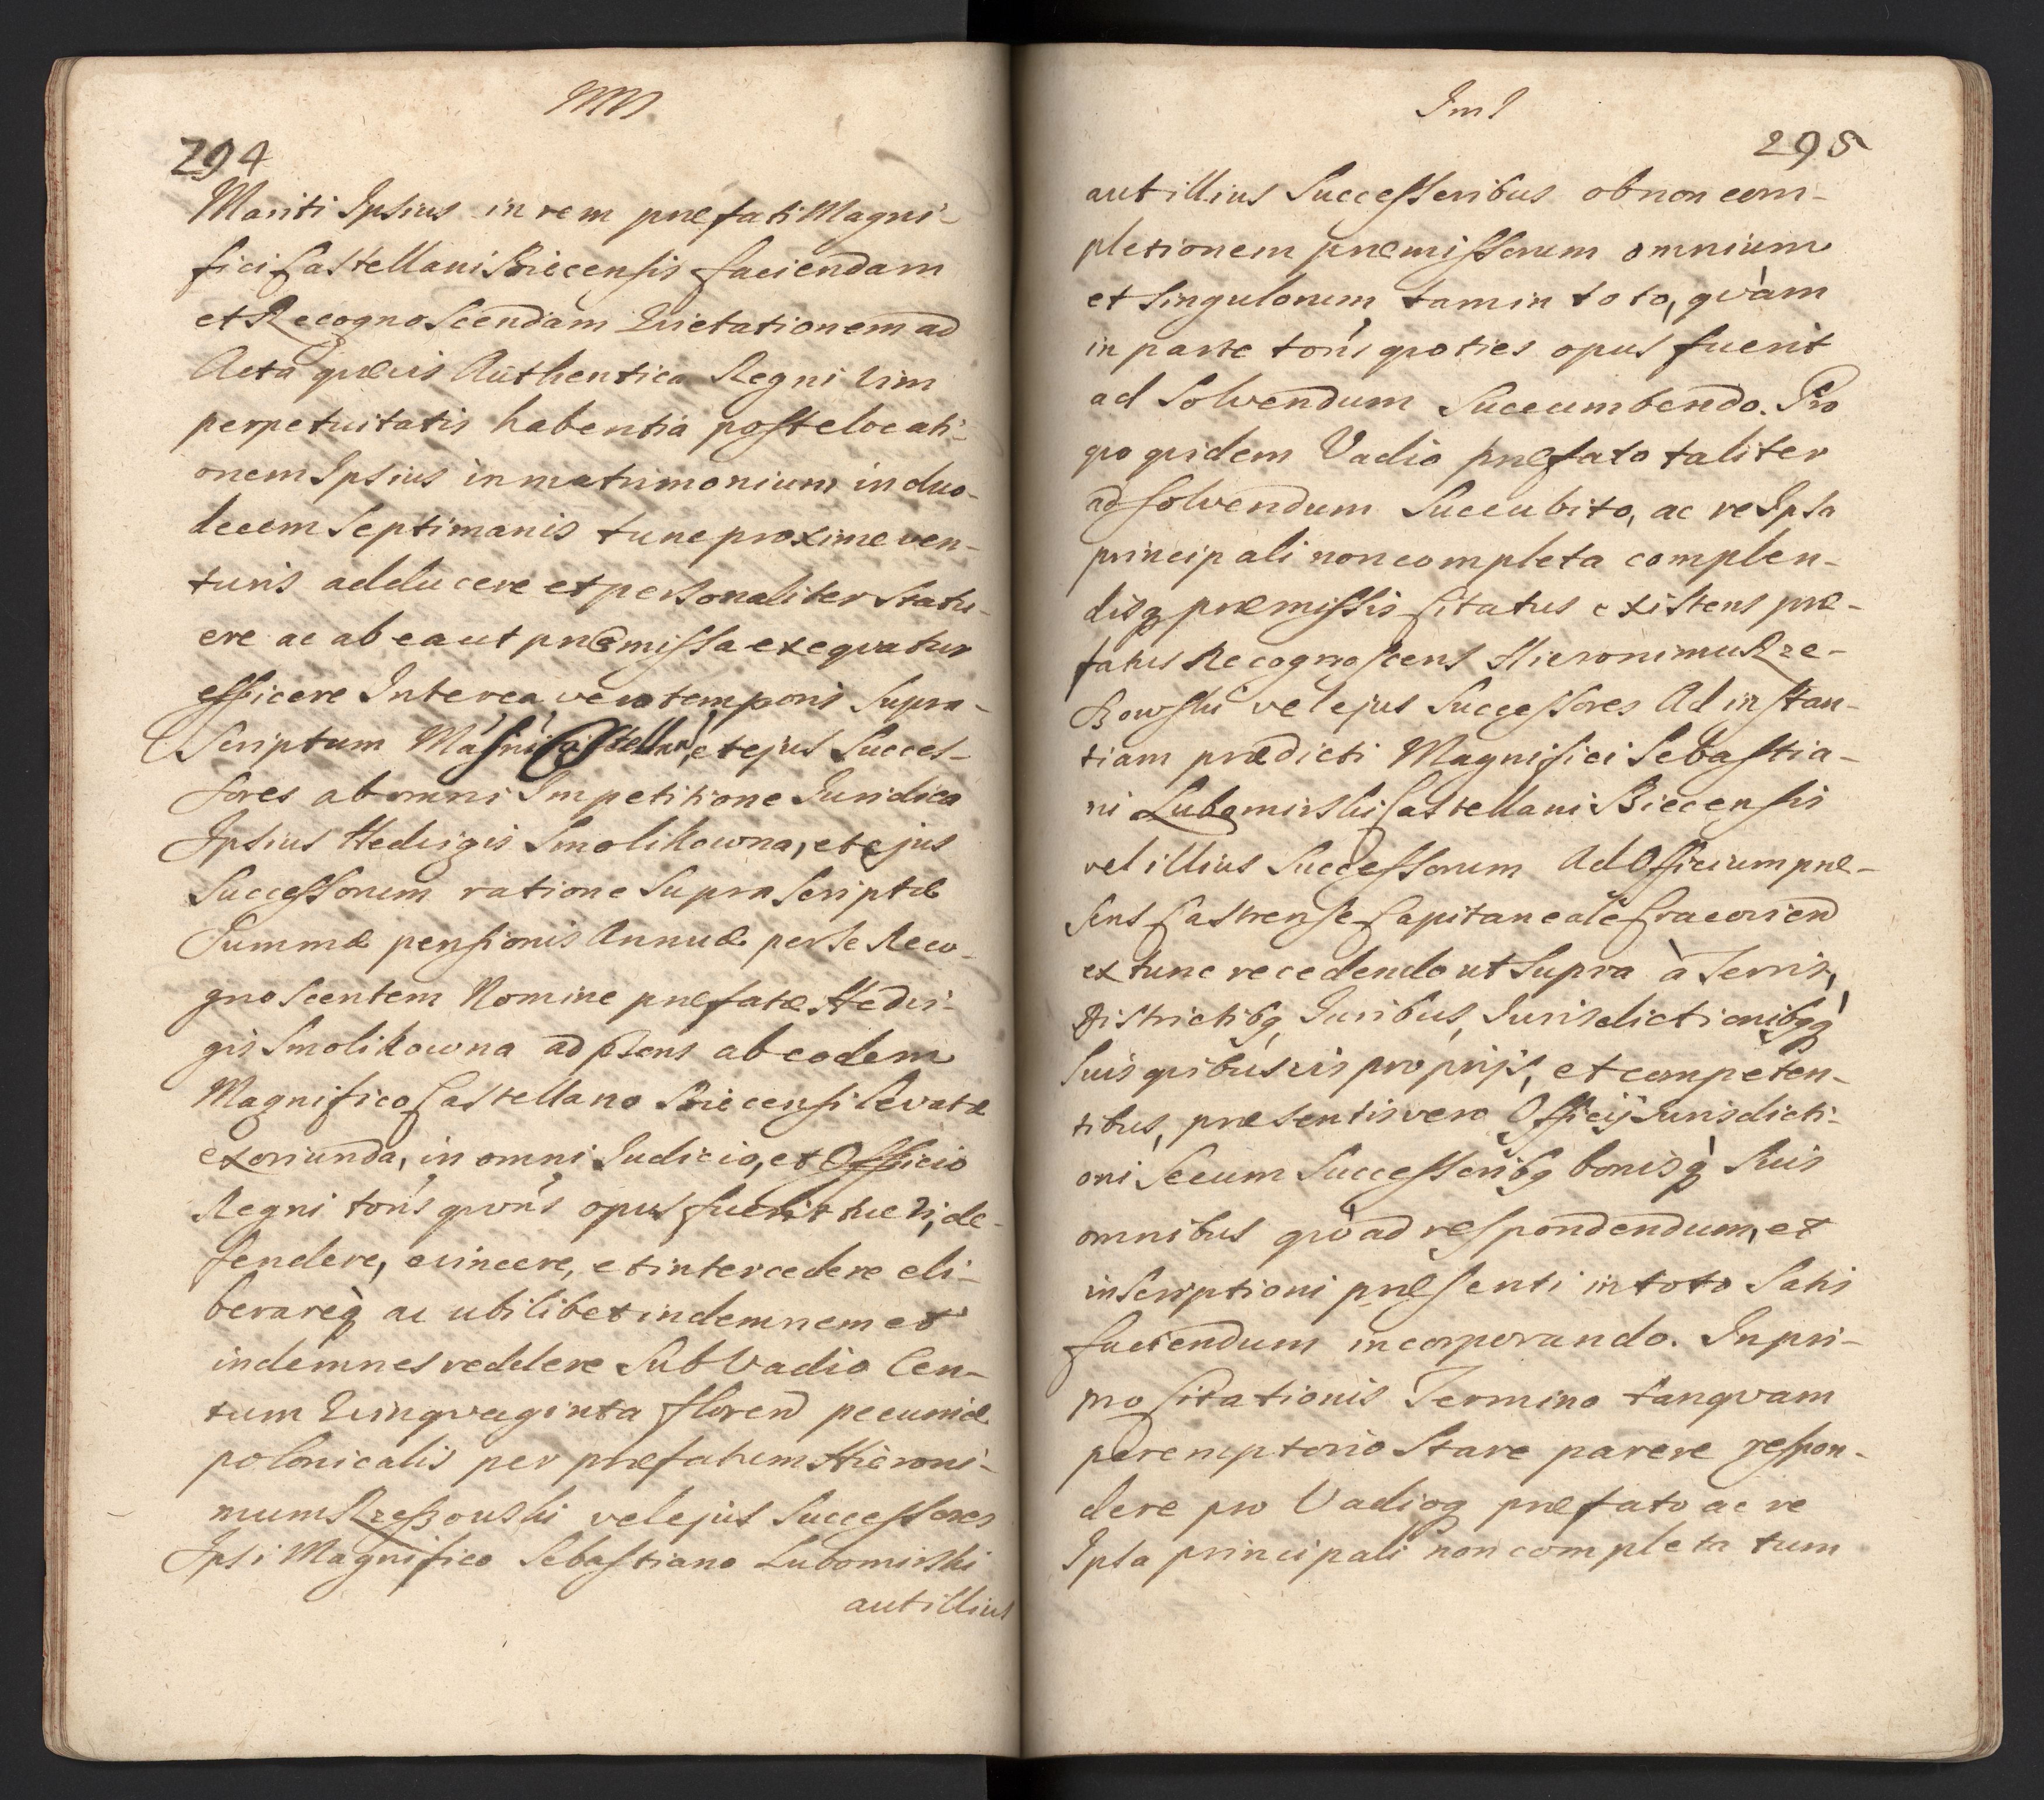 294
Mariti Ipsius in rem præfati Magni-
fici Castellani Biecensis faciendam
et Recognoscendam Quietationem ad
Acta quævis Authentica Regni vim
perpetuitatis habentia post elocati-
onem Ipsius in matrimonium in duo-
decem septimanis tunc proxime ven-
turis adducere et personaliter statu-
ere ac ab ea ut præmissa exequatur
efficere Interea vero temporis supra-
scriptum et ejus Succes-
sores ab omni Impetitione Juridica
Ipsius Hedvigis Smolikowna, et ejus
Successorum ratione supra scriptæ
Summæ pensionis Annuæ per se Reco-
gnoscentem Nomine præfatæ Hedvi-
gis Smolikowna ad psens ab eodem
Magnifico Castellano Biecensi levatæ
exoriunda, in omni Judicio, et Officio
Regni tons quons opus fuerit tueri, de-
fendere, evincere, et intercedere eli-
berareq ac ubilibet indemnem et
indemnes reddere sub Vadio Cen-
tum Quinquaginta floren pecuniæ
polonicalis per præfatum Hieroni-
mum Rzeszowski vel ejus Successores
Ipsi Magnifico Sebastiano Lubomirski
aut illius
295
aut illius Successoribus ob non com-
pletionem præmissorum omnium
et singulorum, tam in toto, qvàm
in parte tons quoties opus fuerit
ad solvendum succumbendo. Pro
quo quidem Vadio præfato taliter
ad solvendum succubito, ac re Ipsa
principali non completa complen-
disq præmissis Citatus existens præ-
fatus Recognoscens Hieronimus Rze-
szowski vel ejus Successores Ad instan-
tiam prædicti Magnifici Sebastia-
ni Lubomirski Castellani Biecensis
vel illius Successorum Ad Officium præ-
sens Castrense Capitaneale Cracovien
ex tunc recedendo ut supra à Terris,
Districtibq, Juribus, Jurisdictionibqq
suis quibusvis proprijs, et competen-
tibus, præsentis vero Officij Jurisdicti-
oni secum Successoribq bonisq suis
omnibus quò ad respondendum, et
inscriptioni præsenti in toto satis
faciendum incorporando. In pri-
mo Citationis Termino tanqvam
peremptorio stare parere respon-
dere pro Vadioq præfato ac re
Ipsa principali non completa tum